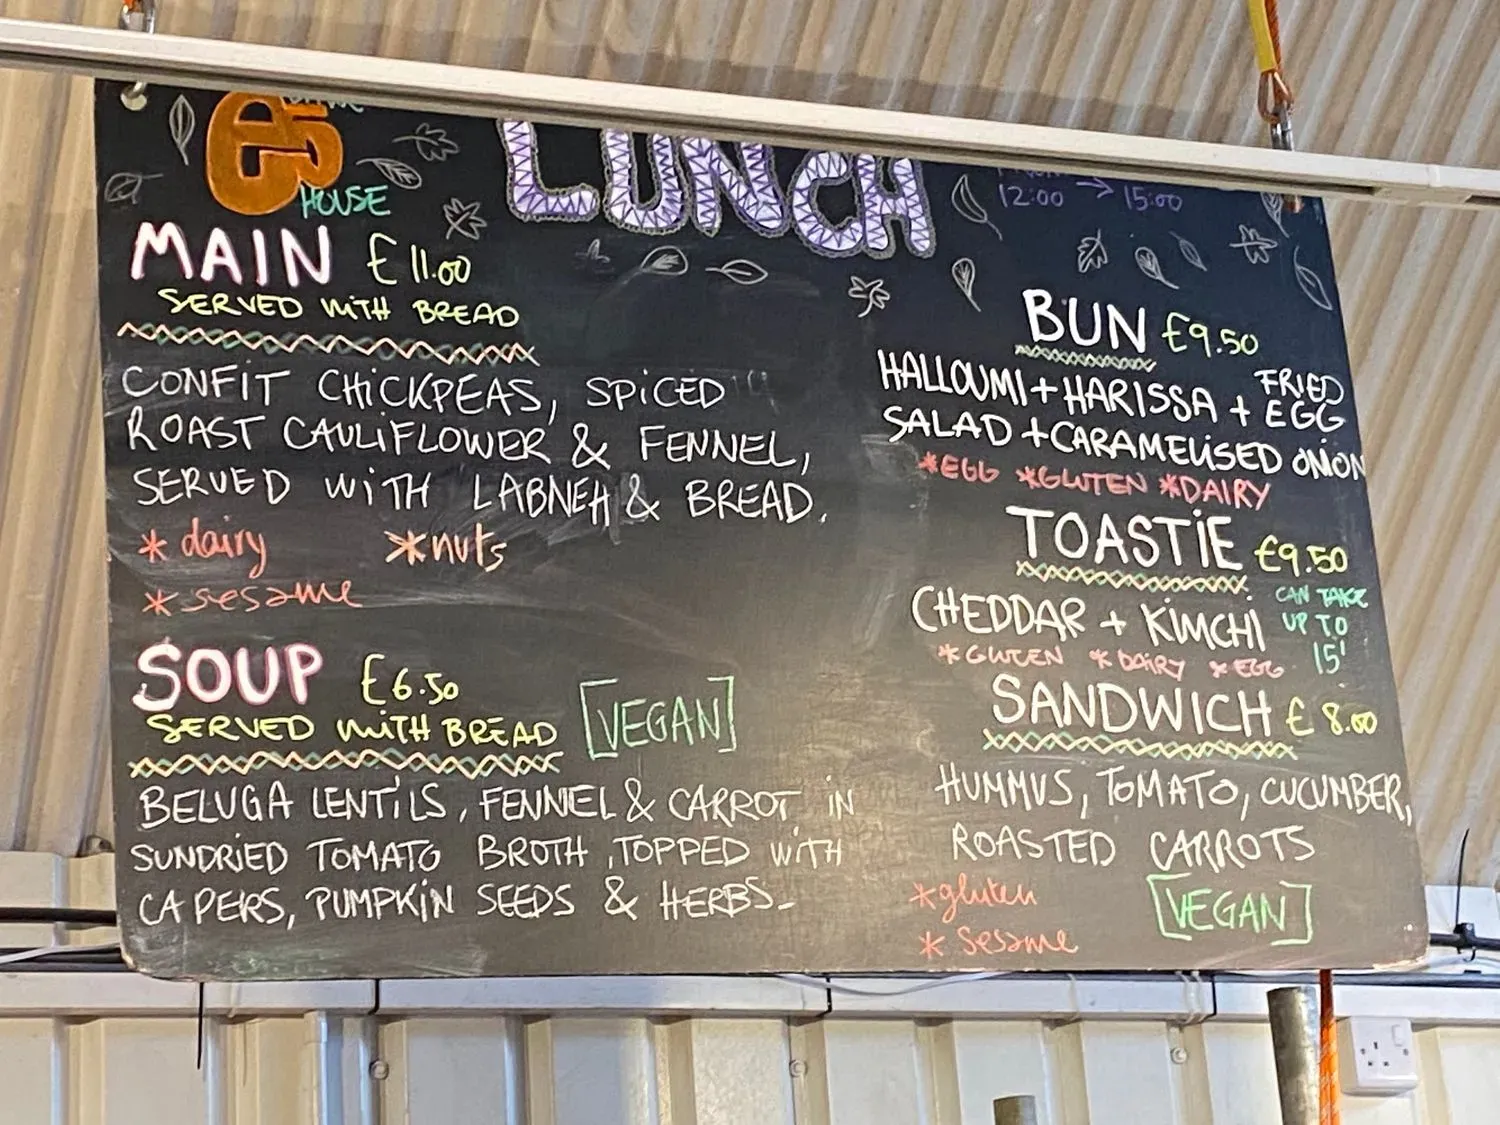 HOUSE
LUNCH
12:00 → 15:00
MAIN £11.00
SERVED WITH BREAD
CONFIT CHICKPEAS, SPICED
ROAST CAULIFLOWER & FENNEL,
SERVED WITH LABNEH & BREAD.
* dairy *nuts
* sesame
SOUP £6.50
SERVED WITH BREAD [VEGAN]
BELUGA LENTILS, FENNEL & CARROT IN
SUNDRIED TOMATO BROTH, TOPPED WITH
CAPERS, PUMPKIN SEEDS & HERBS-
BUN £9.50
HALLOUMI + HARISSA + FRIED EGG
SALAD + CARAMELISED ONION
*EGG *GLUTEN *DAIRY
TOASTIE £9.50
CHEDDAR + KIMCHI
CAN TAKE
UP TO
15'
*GLUTEN *DAIRY *EGG
SANDWICH £8.00
HUMMUS, TOMATO, CUCUMBER,
ROASTED CARROTS
*gluten
* sesame
[VEGAN]